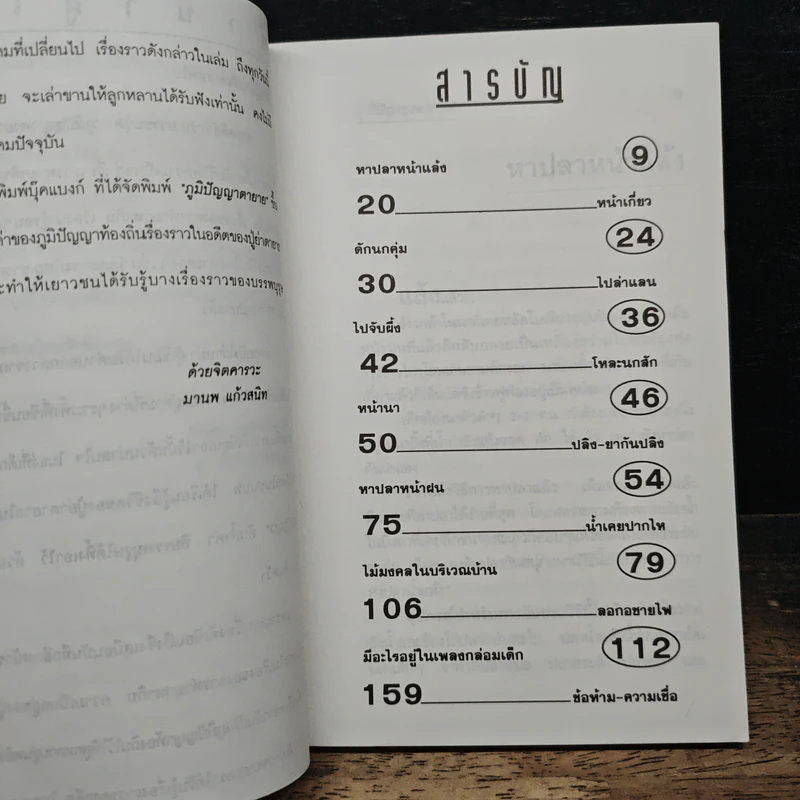 คมที่เปลี่ยนไป เรื่องราวดังกล่าวในเล่ม ถึงทุกวันนี้
จะเล่าขานให้ลูกหลานได้รับฟังเท่านั้น คงไม่มี
คมปัจจุบัน
พิมพ์บุ๊คแบงก์ ที่ได้จัดพิมพ์ "ภูมิปัญญาตายาย" ขึ้น
ค่าของภูมิปัญญาท้องถิ่นเรื่องราวในอดีตของปู่ย่าตายาย
ะทำให้เยาวชนได้รับรู้บางเรื่องราวของบรรพบุรุษ
ด้วยจิตคารวะ
มานพ แก้วสนิท
สารบัญ
หาปลาหน้าแล้ง 9
20 หน้าเกี่ยว
ดักนกคุ่ม 24
30 ไปล่าแลน
ไปจับผึ้ง 36
42 โหละนกสัก
หน้านา 46
50 ปลิง-ยากันปลิง
หาปลาหน้าฝน 54
75 น้ำเคยปากไห
ไม้มงคลในบริเวณบ้าน 79
106 ลอกอชายไฟ
มีอะไรอยู่ในเพลงกล่อมเด็ก 112
159 ข้อห้าม-ความเชื่อ